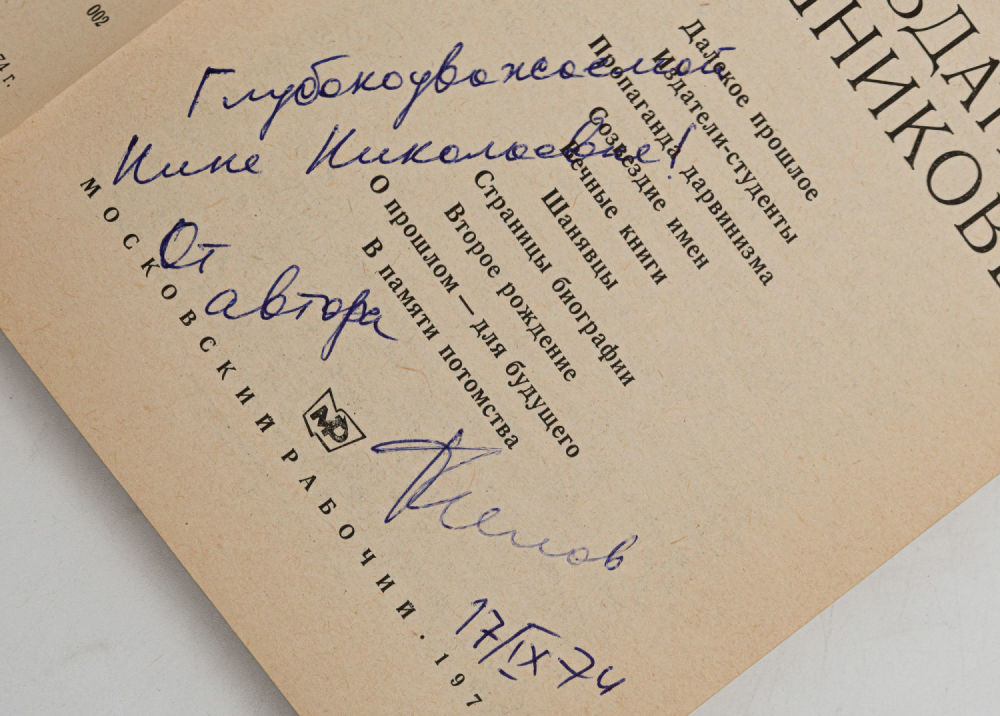 002
74 г.
Глубокоуважаемой
Нине Николаевне!
От
автора
17/IX 74
Далекое прошлое
Издатели-студенты
Пропаганда дарвинизма
Созвездие имен
Вечные книги
Шанявцы
Страницы биографии
Второе рождение
О прошлом — для будущего
В памяти потомства
МОСКОВСКИЙ РАБОЧИЙ · 197
МР